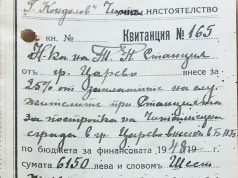 Г. Кондолов" Чит. НАСТОЯТЕЛСТВО
кн. № Квитанция № 165
Н-ка на Т. П. Станция
отъ гр. Царево внесе за
25% от заплатите на слу-
жителите при Станцията
за постройка на Читалищна
сграда в гр. Царево
по бюджета за финансовата 1948 —19
сумата 6150 лева и словом Шест